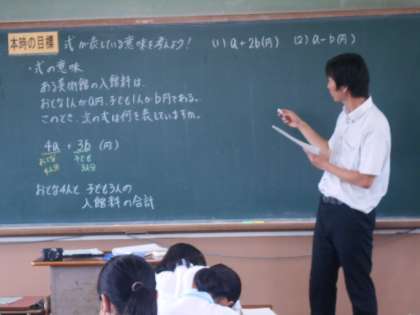 本時の目標 式が表している意味を考えよう! (1) a+2b(円) (2) a-b(円)
・式の意味
ある美術館の入館料は、
おとな1人がa円、子ども1人がb円である。
このとき、次の式は何を表していますか。
4a + 3b (円)
おとな 子ども
4人分 3人分
おとな4人と子ども3人の
入館料の合計